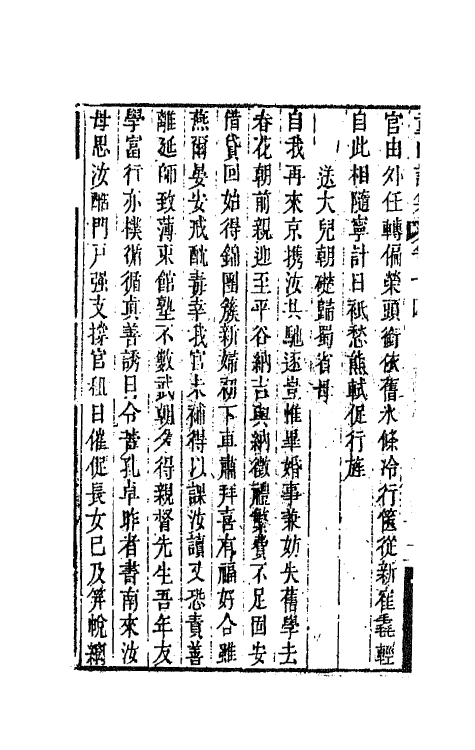 官由外任轉偏榮頭銜依舊氷條冷行篋從新雇毳輕
自此相隨寧計日祇愁熊軾促行旌
送大兒朝礎歸蜀省母
自我再來京携汝共馳逐豈惟畢婚事兼妨失舊學去
春花朝前親迎至平谷納吉與納徵體繁費不足囬安
借貸回始得錦團簇新婦初下車肅拜喜有福好合雖
燕爾晏安戒酖毒幸我官未補得以課汝讀又恐責善
離延師致薄束館塾不數武朝夕得親督先生吾年友
學富行亦樸循循真善誘日令苦孔卓昨者書南來汝
母思汝酷門戸强支撑官租日催促長女已及笄帨縭